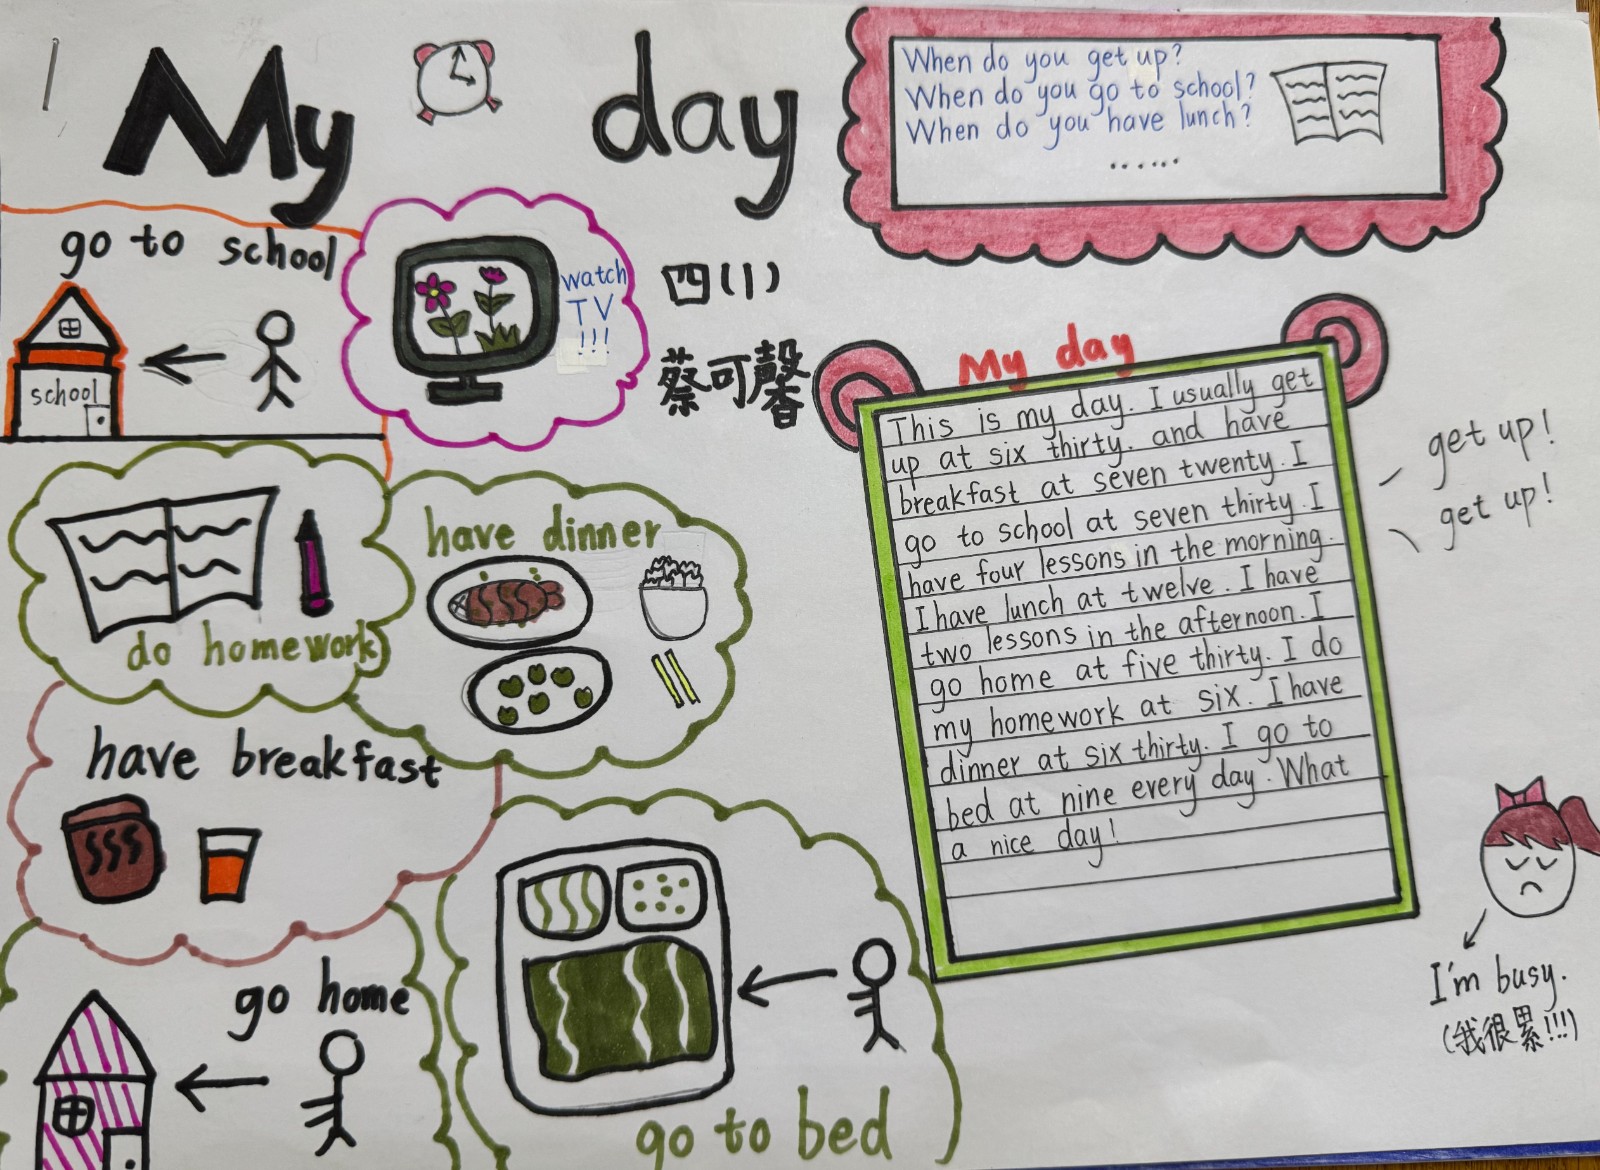 My day
When do you get up?
When do you go to school?
When do you have lunch?
......
go to school
school
watch
TV
!!!
四(1)
蔡可馨
do homework
have dinner
have breakfast
go home
go to bed
My day
This is my day. I usually get
up at six thirty. and have
breakfast at seven twenty. I
go to school at seven thirty. I
have four lessons in the morning.
I have lunch at twelve. I have
two lessons in the afternoon. I
go home at five thirty. I do
my homework at six. I have
dinner at six thirty. I go to
bed at nine every day. What
a nice day!
get up!
get up!
I'm busy.
(我很累!!!)